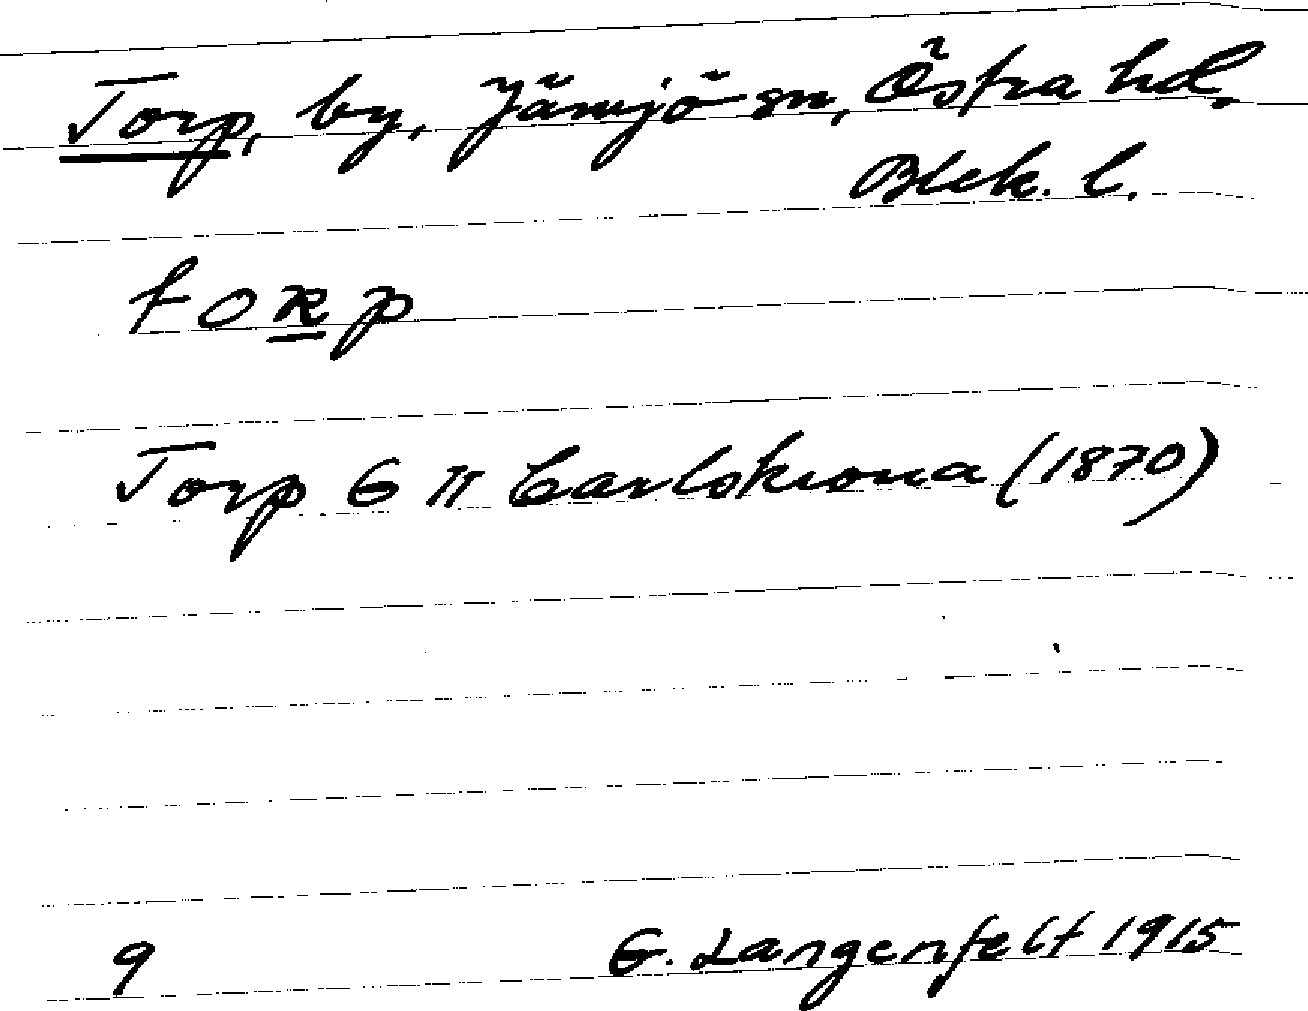 Torp, by, Jämjö sn, Östra hd.
Blek. l.
torp
Torp G π Carlskrona (1870)
9 G. Langenfelt 1915